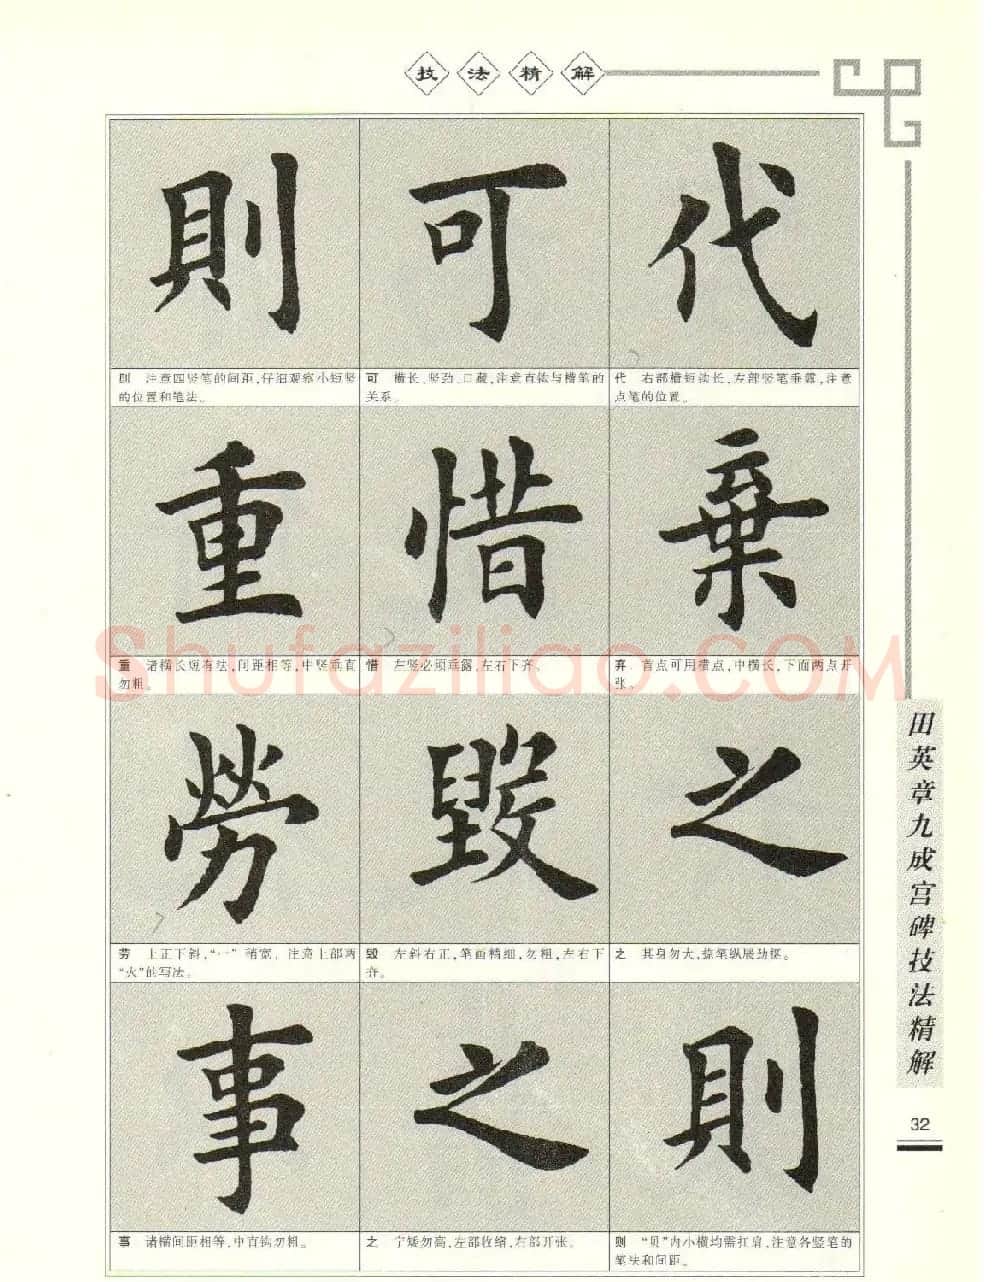 技法精解
則 可 代
則 注意四竖笔的间距,仔细观察小短竖
的位置和笔法。
可 横长、竖劲、口藏,注意直钩与横笔的
关系。
代 右部横短钩长,左部竖笔垂露,注意
点笔的位置。
重 惜 棄
重 诸横长短有法,间距相等,中竖垂直
勿粗。
惜 左竖必须垂露,左右下齐。
弃 首点可用横点,中横长,下面两点开
张。
勞 毀 之
劳 上正下斜,“冖”稍宽,注意上部两
“火”的写法。
毁 左斜右正,笔画精细,勿粗,左右下
齐。
之 其身勿大,捺笔纵展劲挺。
事 之 則
事 诸横间距相等,中直钩勿粗。
之 宁矮勿高,左部收缩,右部开张。
则 “贝”内小横均需扛肩,注意各竖笔的
笔法和间距。
田英章九成宫碑技法精解
32
Shufaziliao.COM